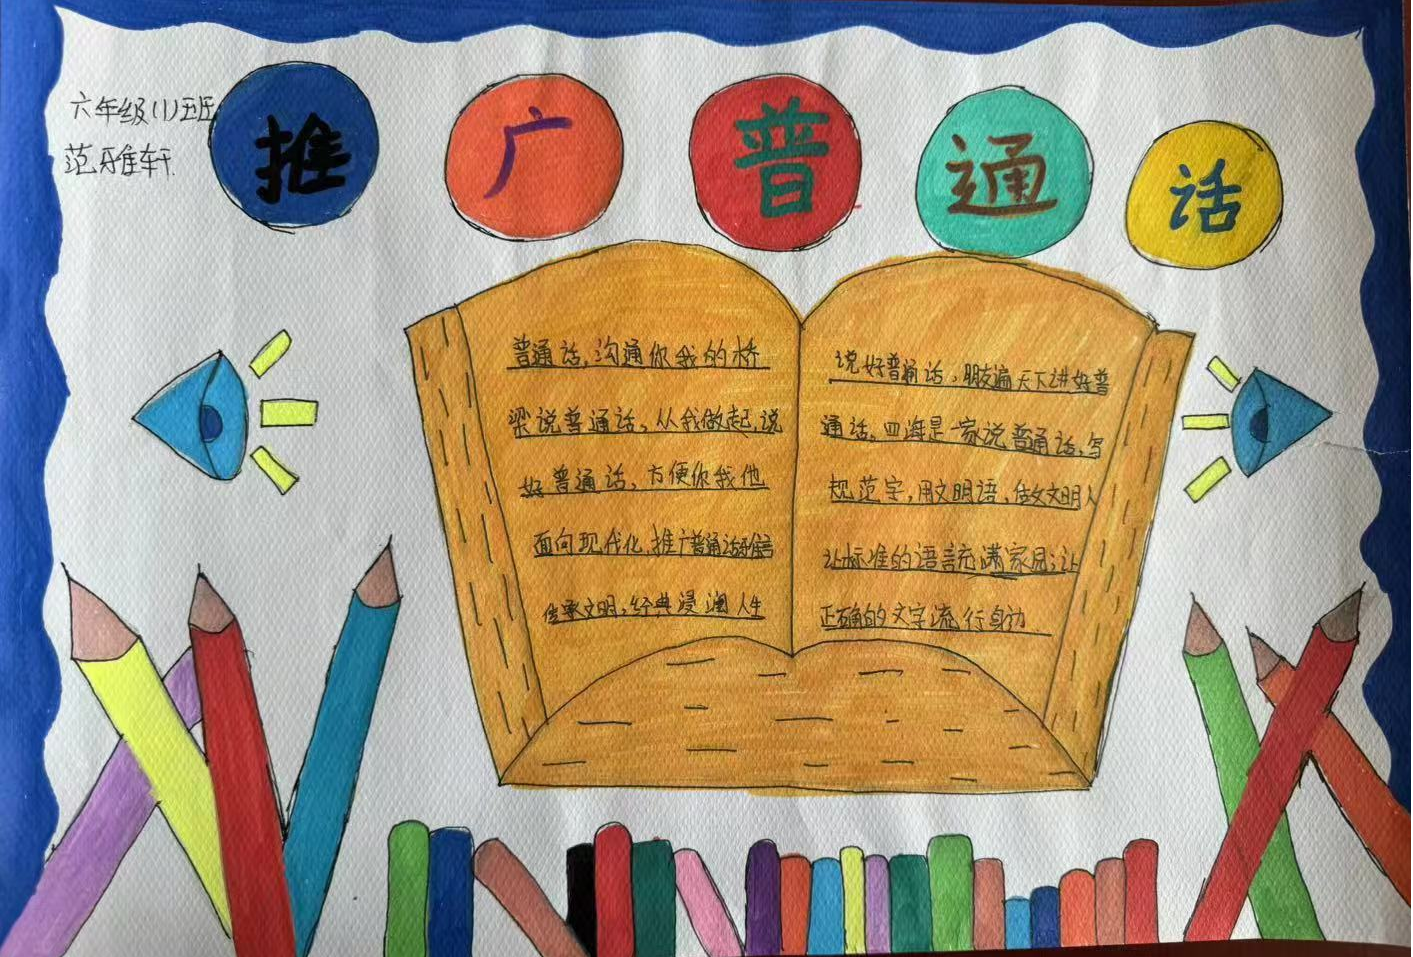 六年级(1)班
范雅轩
推广普通话
普通话,沟通你我的桥
梁说普通话,从我做起,说
好普通话,方便你我他
面向现代化,推广普通话雅言
传承文明,经典浸润人生
说好普通话,朋友遍天下讲好普
通话,四海是一家说普通话,写
规范字,用文明语,做文明人
让标准的语言充满家园;让
正确的文字流行身边